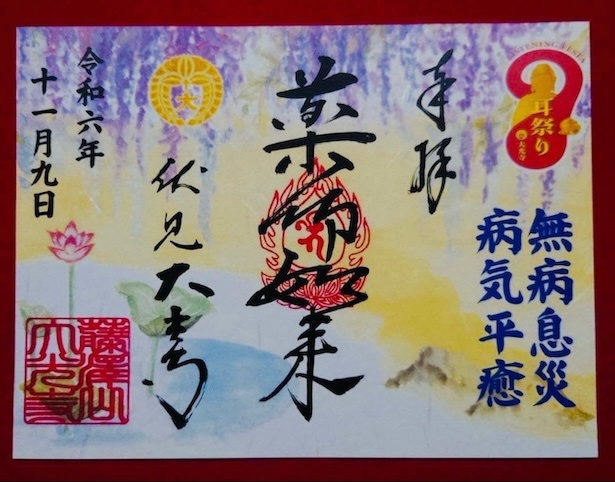 耳祭り
大光寺
無病息災
病気平癒
奉拝
薬師如来
大
伏見大光寺
令和六年
十一月九日